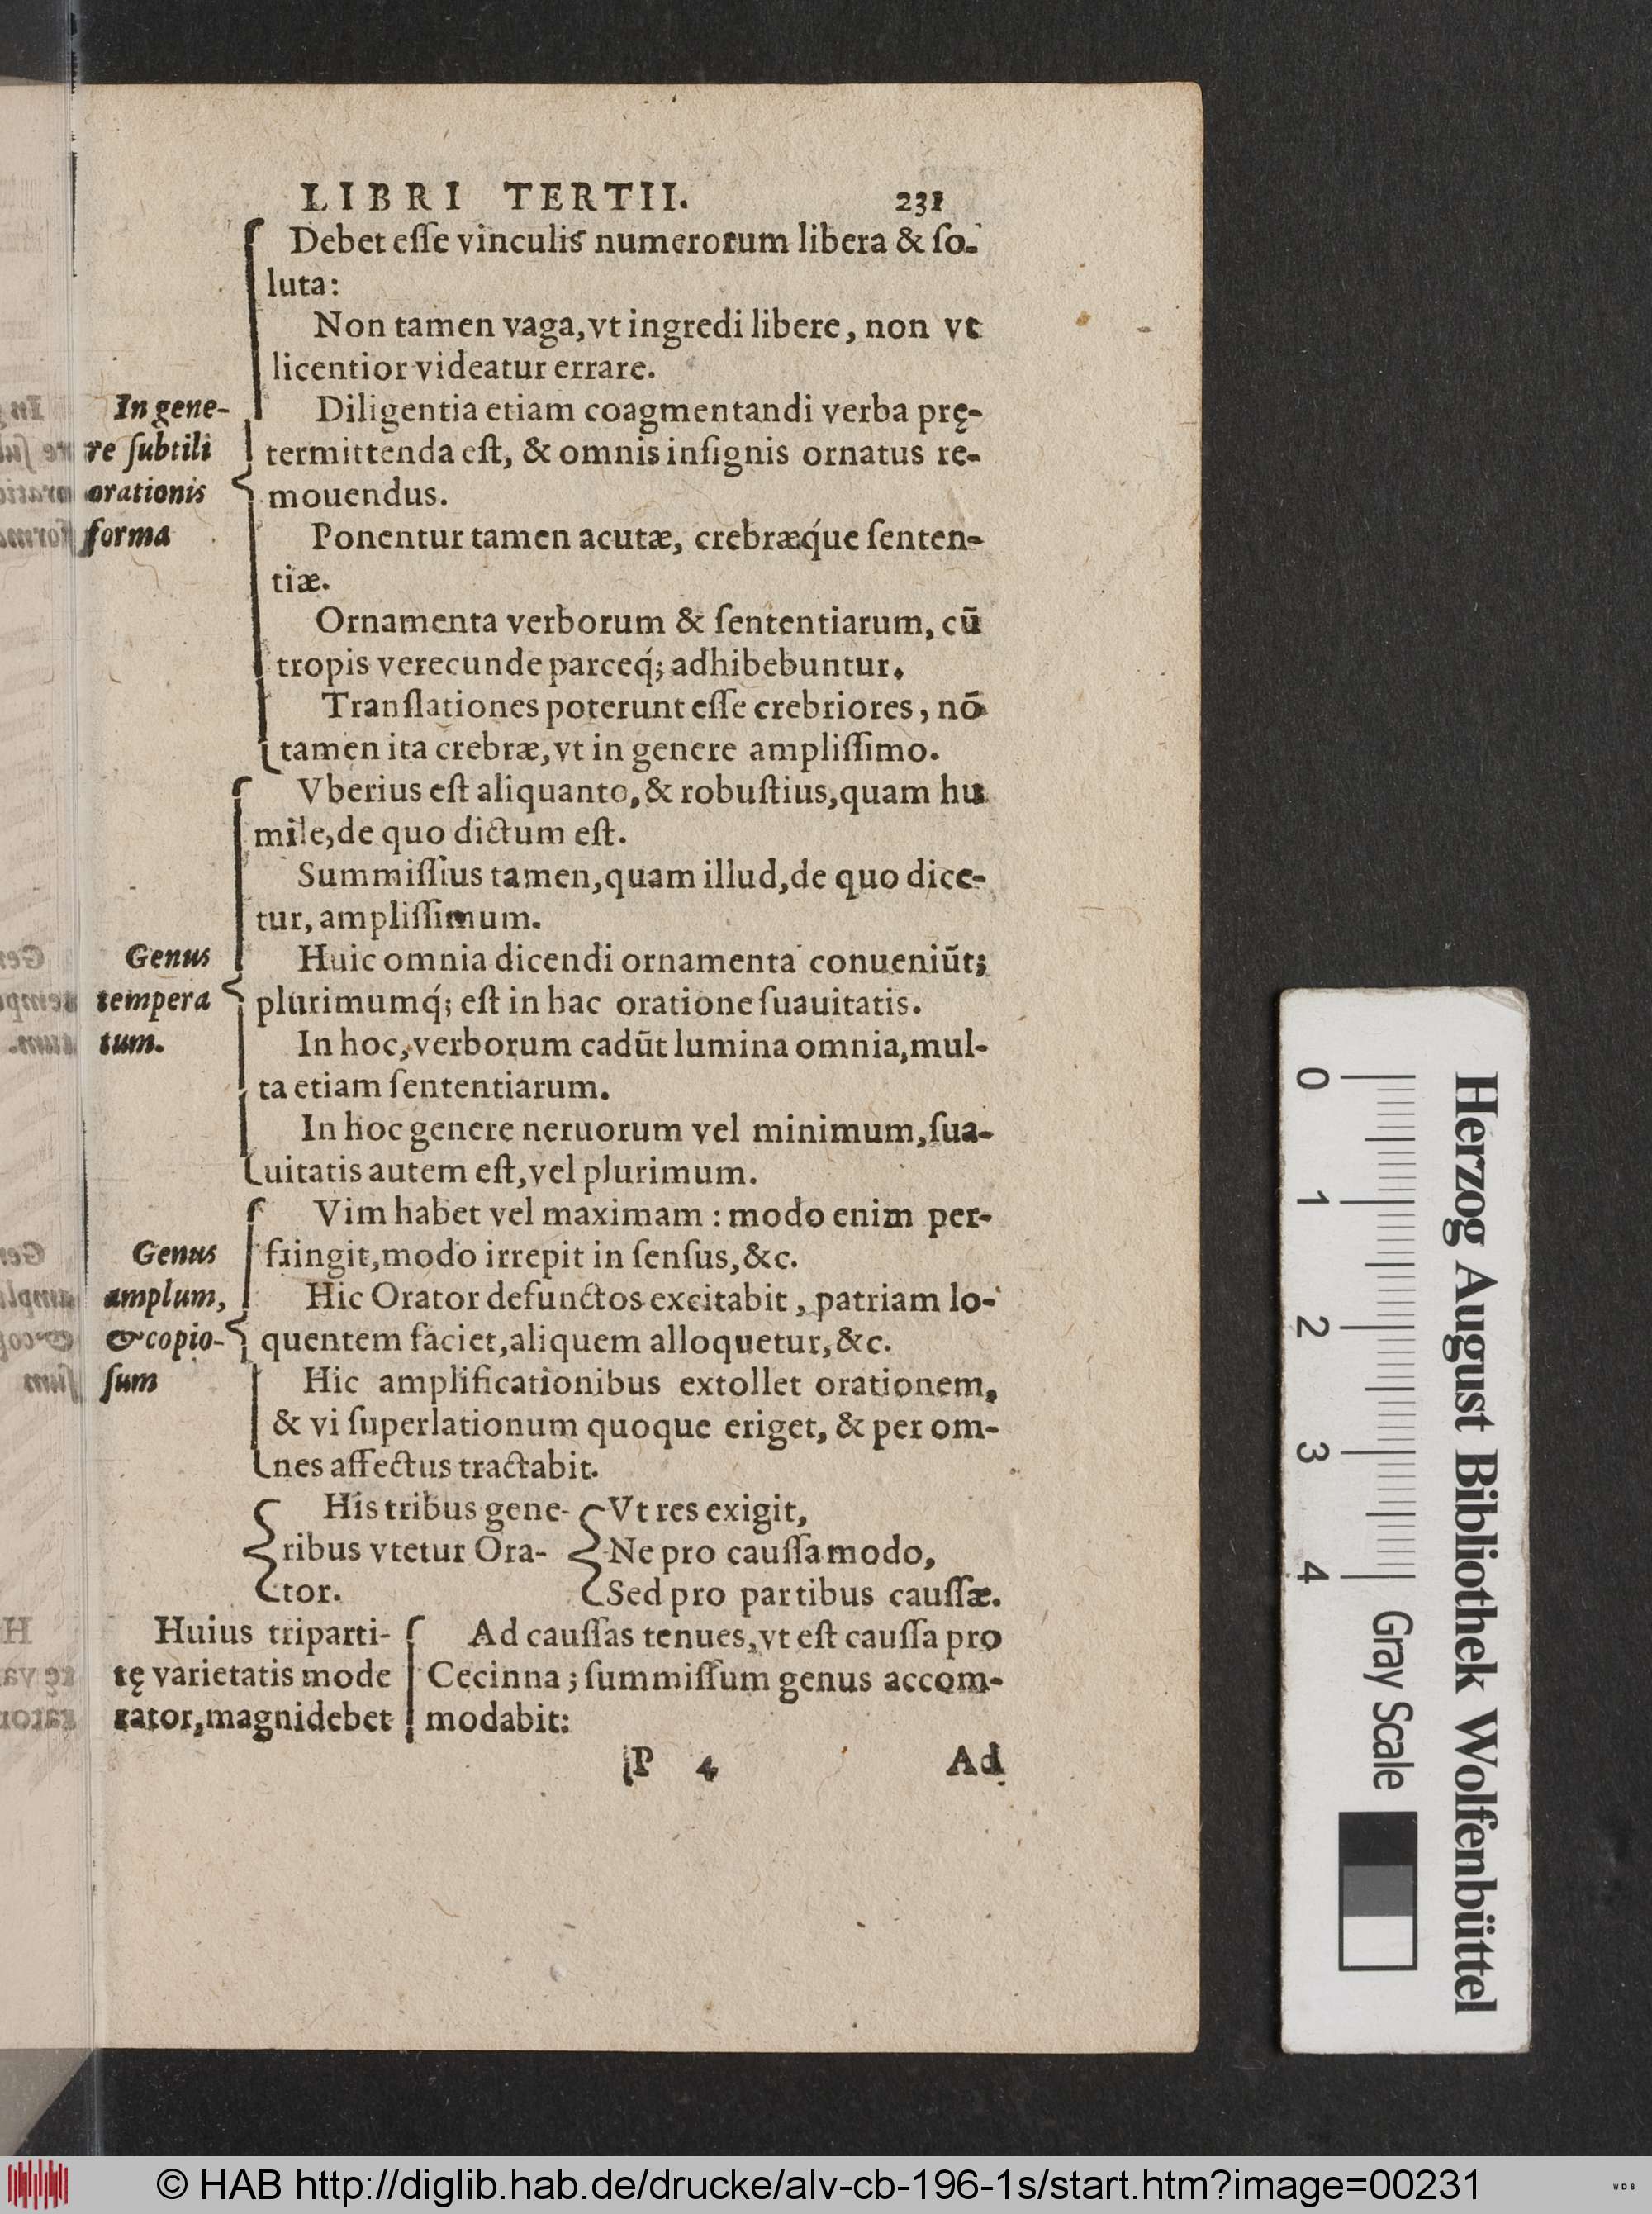 LIBRI TERTII. 231
Debet eſſe vinculis numerorum libera & ſo-
luta:
Non tamen vaga, vt ingredi libere, non vt
licentior videatur errare.
In gene-
re ſubtili
orationis
forma
Diligentia etiam coagmentandi verba prę-
termittenda eſt, & omnis inſignis ornatus re-
mouendus.
Ponentur tamen acutæ, crebræq́ue ſenten-
tiæ.
Ornamenta verborum & ſententiarum, cũ
tropis verecunde parceq́; adhibebuntur.
Tranſlationes poterunt eſſe crebriores, nõ
tamen ita crebræ, vt in genere ampliſſimo.
Vberius eſt aliquanto, & robuſtius, quam hu
mile, de quo dictum eſt.
Summiſſius tamen, quam illud, de quo dice-
tur, ampliſſimum.
Genus
tempera
tum.
Huic omnia dicendi ornamenta conueniũt;
plurimumq́; eſt in hac oratione ſuauitatis.
In hoc, verborum cadũt lumina omnia, mul-
ta etiam ſententiarum.
In hoc genere neruorum vel minimum, ſua-
uitatis autem eſt, vel plurimum.
Genus
amplum,
& copio-
ſum
Vim habet vel maximam : modo enim per-
fringit, modo irrepit in ſenſus, &c.
Hic Orator defunctos excitabit, patriam lo-
quentem faciet, aliquem alloquetur, &c.
Hic amplificationibus extollet orationem,
& vi ſuperlationum quoque eriget, & per om-
nes affectus tractabit.
His tribus gene-
ribus vtetur Ora-
tor.
Vt res exigit,
Ne pro cauſſa modo,
Sed pro partibus cauſſæ.
Huius triparti-
tę varietatis mode
rator, magni debet
Ad cauſſas tenues, vt eſt cauſſa pro
Cecinna ; ſummiſſum genus accom-
modabit:
P 4 Ad
Herzog August Bibliothek Wolfenbüttel
0 1 2 3 4 Gray Scale
© HAB http://diglib.hab.de/drucke/alv-cb-196-1s/start.htm?image=00231
WDB